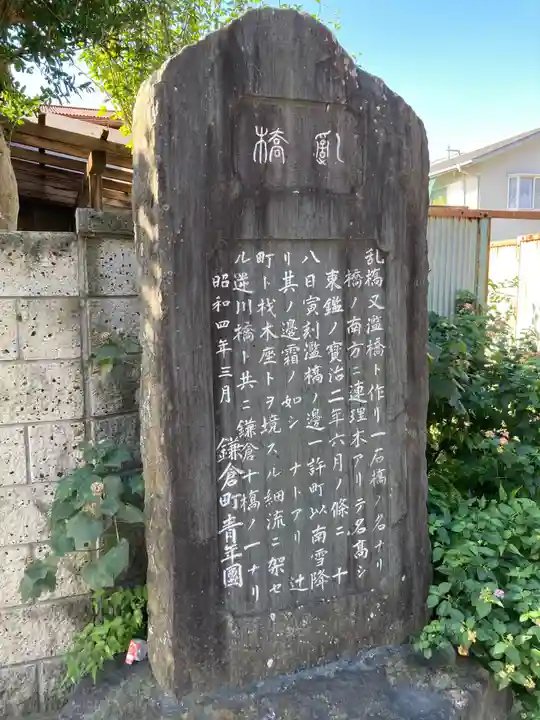 亂橋
乱橋又濫橋ト作リ一石橋ノ名ナリ
橋ノ南方ニ連理木アリテ名髙シ
東鑑ノ寳治二年六月ノ條ニ 十
八日寅刻濫橋ノ邊一許町以南雪降
リ其ノ邊霜ノ如シ ナトアリ 辻
町ト材木座トヲ境スル細流ニ架セ
ル逆川橋ト共ニ鎌倉十橋ノ一ナリ
昭和四年三月 鎌倉町青年團